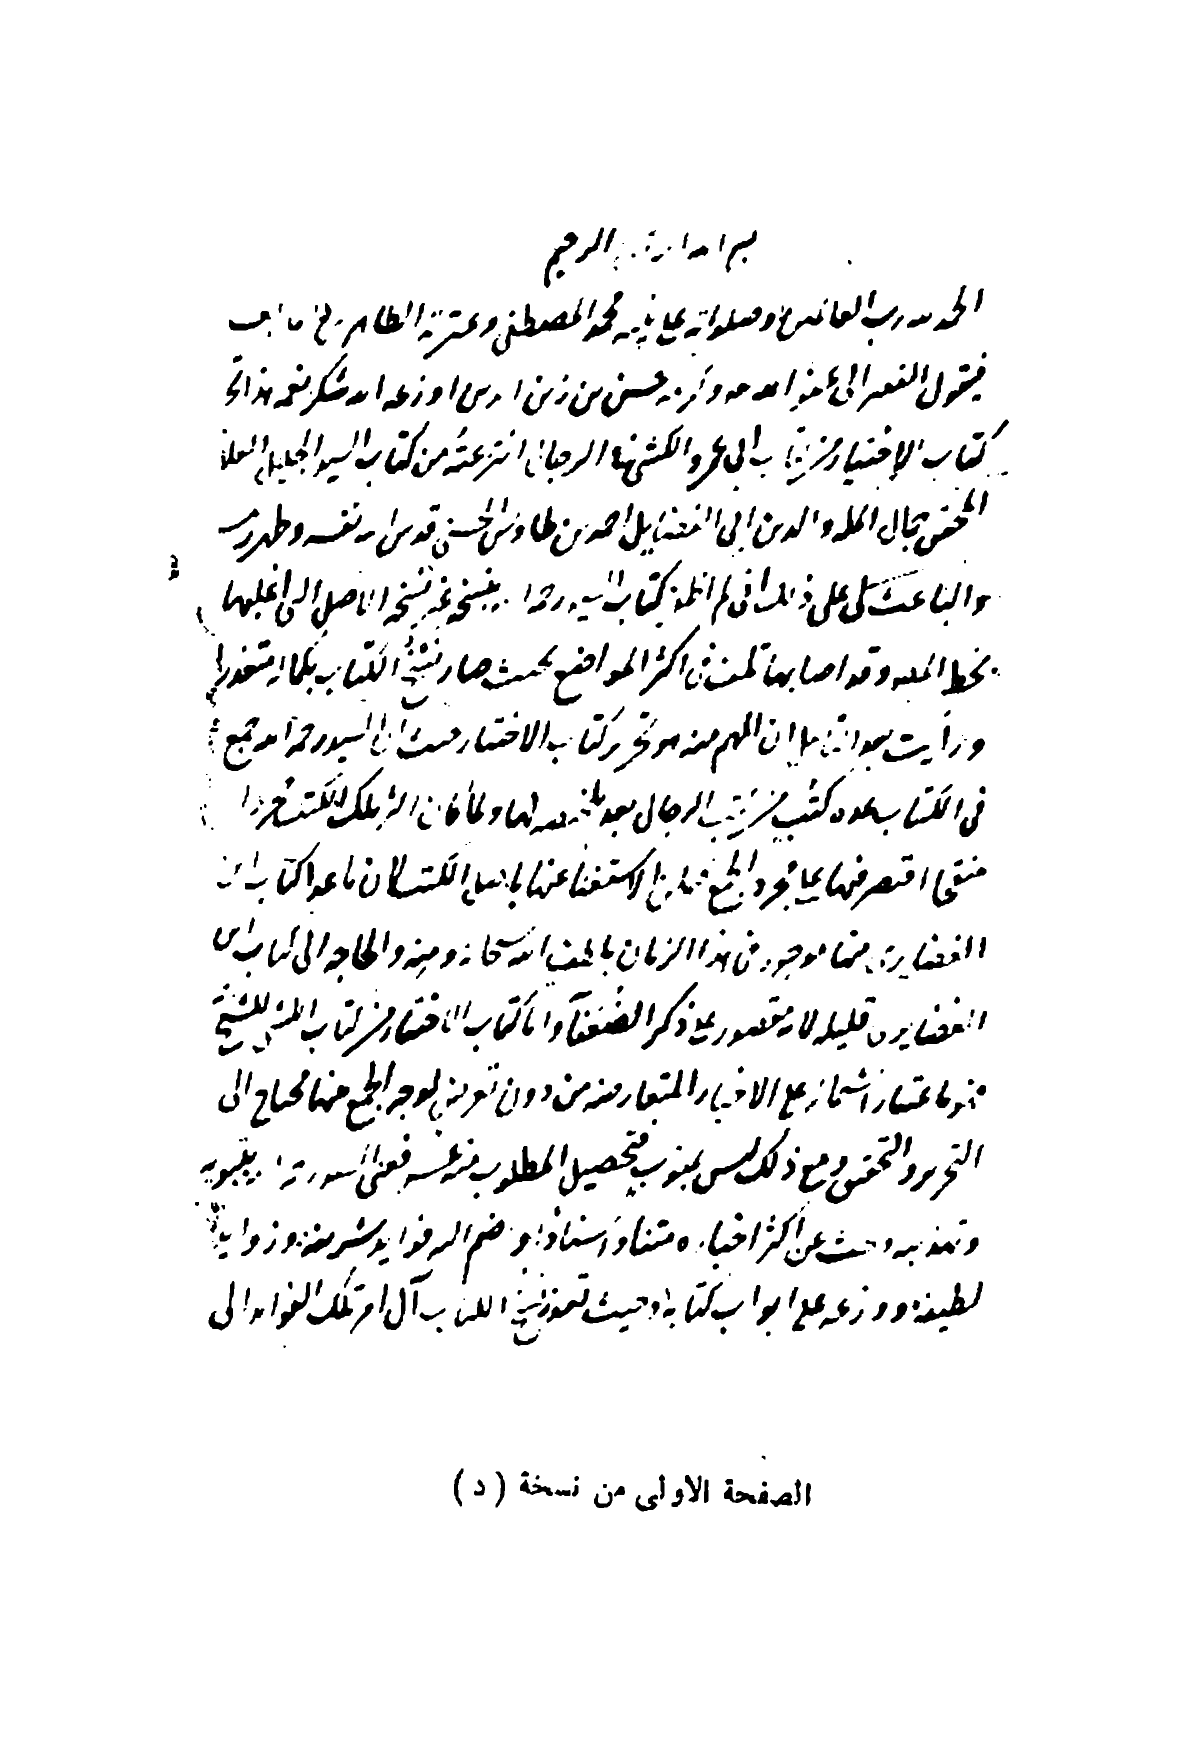 بسم الله الرحيم
الحمد لله رب العالمين وصلواته على نبيه محمد المصطفى وعترته الطاهرين
فيقول الفقير الى عفو الله وكرمه حسن بن زين الدين اوزعه الله شكر نعمه هذا تحرير
كتاب الاختيار من كتاب ابي عمرو الكشي في الرجال انتزعته من كتاب السيد الجليل العلامة
المحقق جمال الملة والدين ابي الفضايل احمد بن طاوس الحسني قدس الله نفسه وطهر رمسه
والباعث لي على ذلك اني لم اظفر لكتاب السيد رحمه الله بنسخة غير نسخة الاصل التي اغلبها
بخط المصنف وقد اصابها تلف في اكثر المواضع بحيث صار نسخ الكتاب بكماله متعذرا
ورأيت بعد التأمل ان المهم منه هو تحرير كتاب الاختيار حيث ان السيد رحمه الله جمع
في الكتاب عدة كتب من كتب الرجال بعد تلخيصه لها ولما كان اكثر تلك الكتب محررا
منقحا اقتصر فيها على مجرد الجمع فيمكن الاستغناء عنها باصل الكتب لان ما عدا كتاب ابن
الغضايري منها موجود في هذا الزمان بلطف الله سبحانه ومنه والحاجة الى كتاب ابن
الغضايري قليلة لانه مقصور على ذكر الضعفاء واما كتاب الاختيار من كتاب الكشي للشيخ
فهو باعتبار اشتماله على الاخبار المتعارضة من دون تعرض لوجه الجمع بينها محتاج الى
التحرير والتحقيق ومع ذلك ليس بمبوب فتحصيل المطلوب منه عسر فعني السيد رحمه الله بتبويبه
وتهذيبه وبحث عن اكثر اخباره متنا واسنادا وضم اليه فوايد شريفة وزوايد
لطيفة ووزعه على ابواب كتابه وحيث تعذر نسخ الكتاب آل امر تلك الفوائد الى
الصفحة الاولى من نسخة ( د )